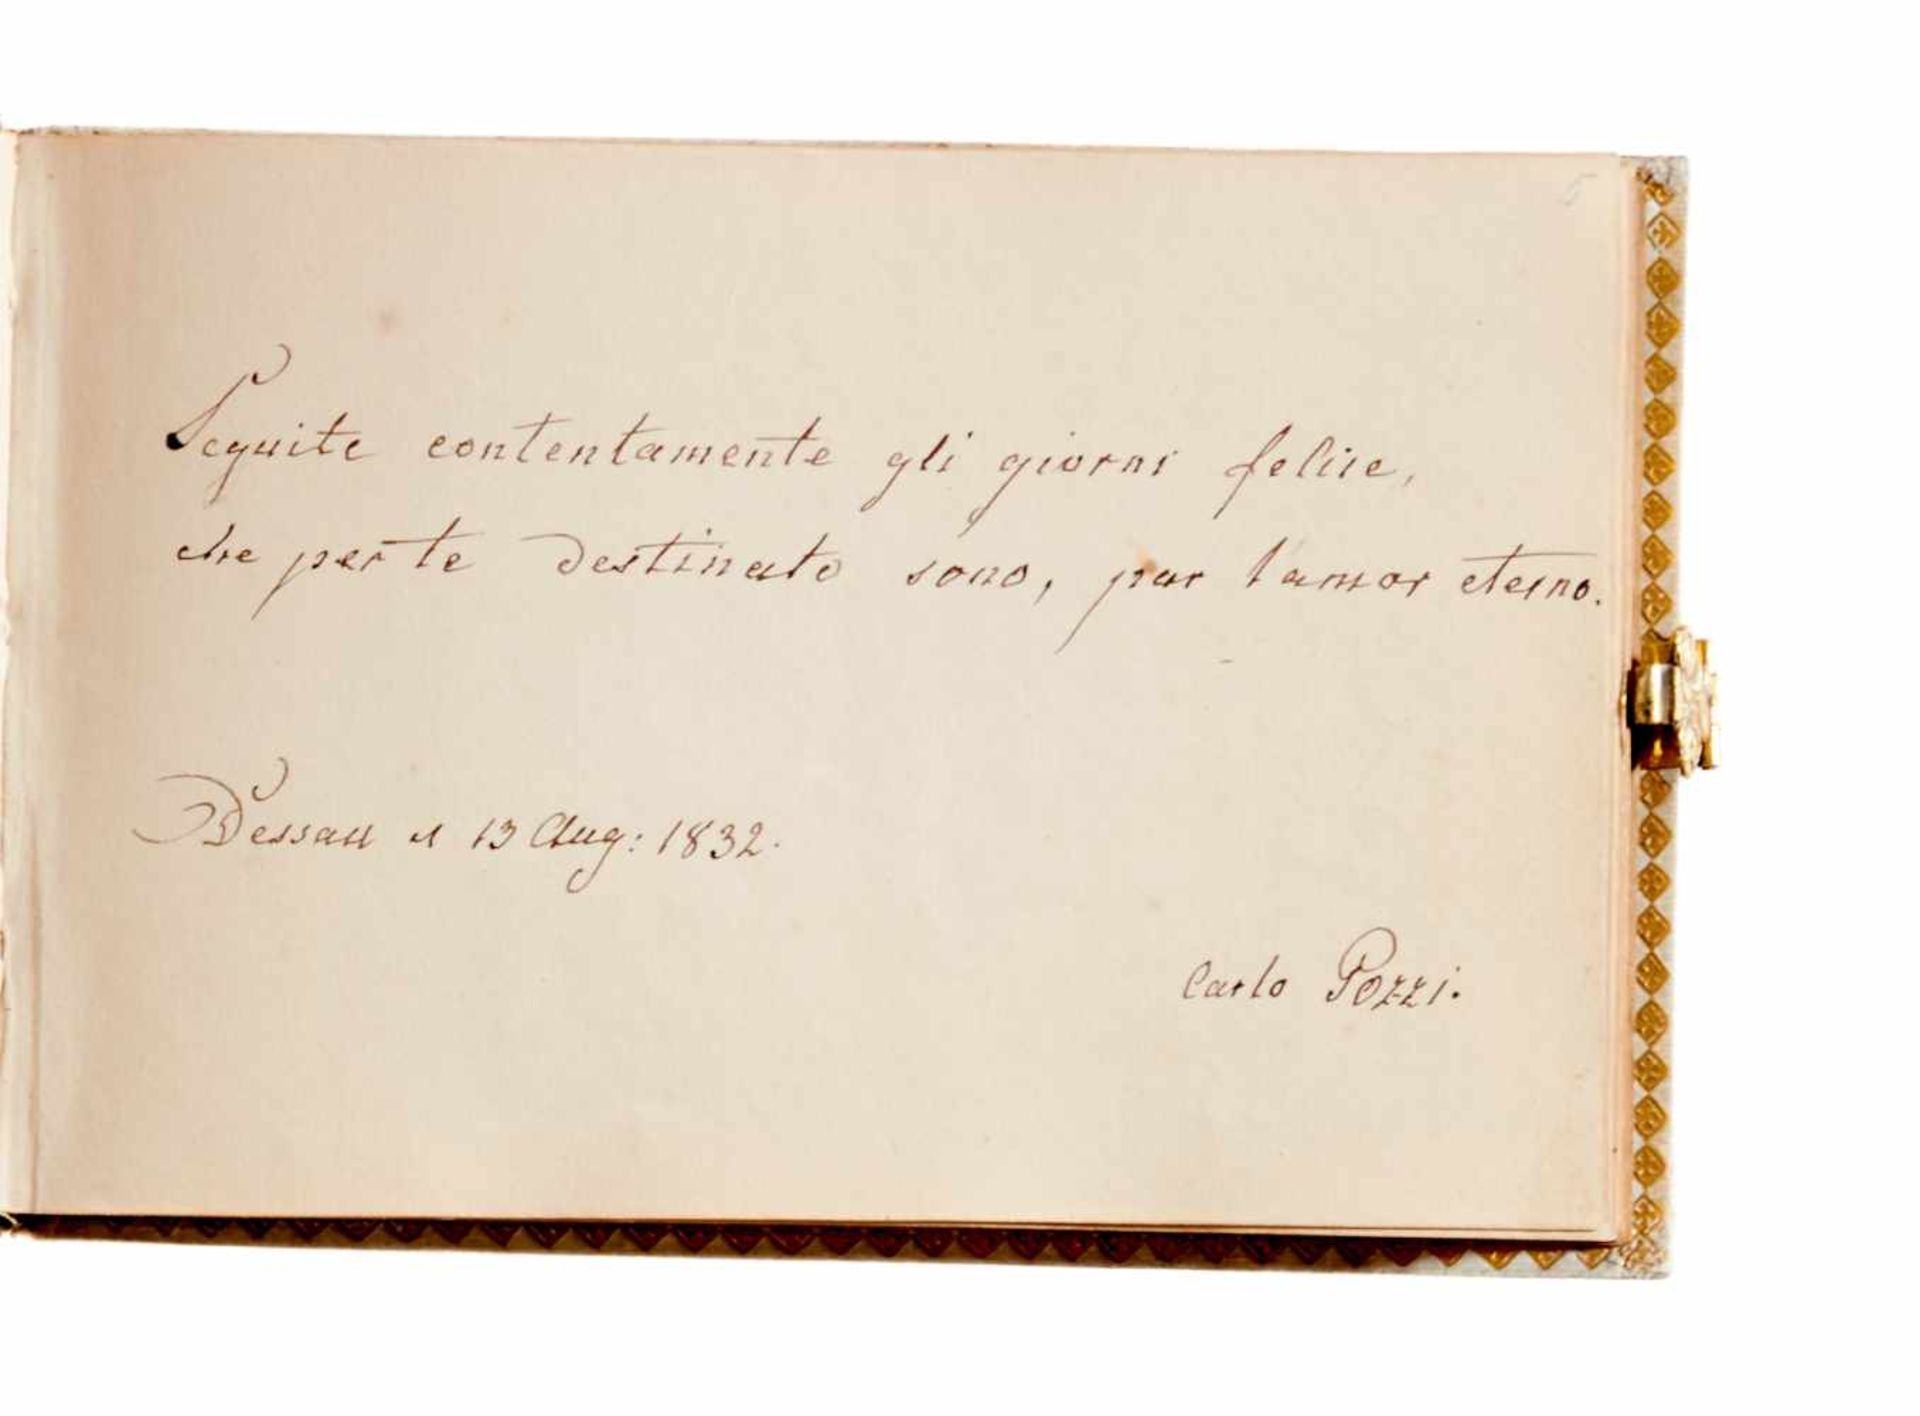 5
Seguite contentamente gli giorni felice,
che per te destinato sono, par l'amor eterno.
Dessau 13 Aug: 1832.
Carlo Pozzi.